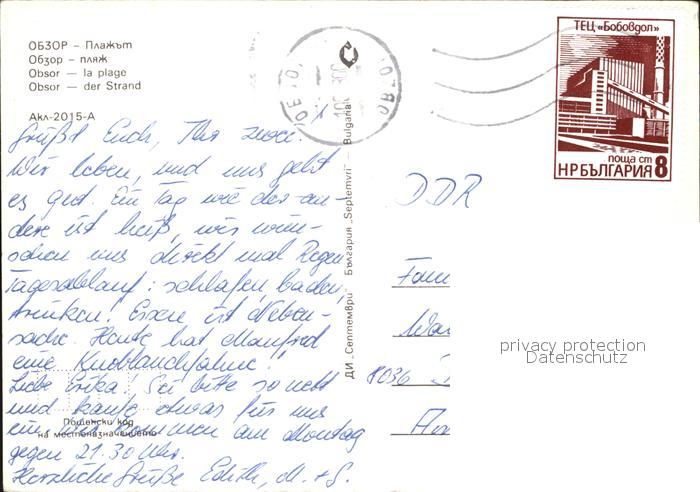 ОБЗОР — Плажът
Обзор — пляж
Obsor — la plage
Obsor — der Strand
Акл-2015-А
Grüßt Euch, Ihr zwei.
Wir leben, und uns geht
es gut. Ein Tag wie der an-
dere ist heiß, wir wün-
schen uns direkt mal Regen
Tagesablauf: schlafen, baden,
trinken! Essen ist Neben-
sache. Heute hat Manfred
eine Knoblauchfahne!
Liebe Erika! Sei bitte so nett
und kaufe etwas für uns
ein, wir kommen am Montag
gegen 21.30 Uhr.
Herzliche Grüße Edith, M. + S.
Пощенски код
на местоназначението
ДИ „Септември“ — България „Septemvri“ — Bulgaria
ТЕЦ „Бобовдол“
поща ст
НРБЪЛГАРИЯ 8
DDR
Fam
8036
privacy protection
Datenschutz